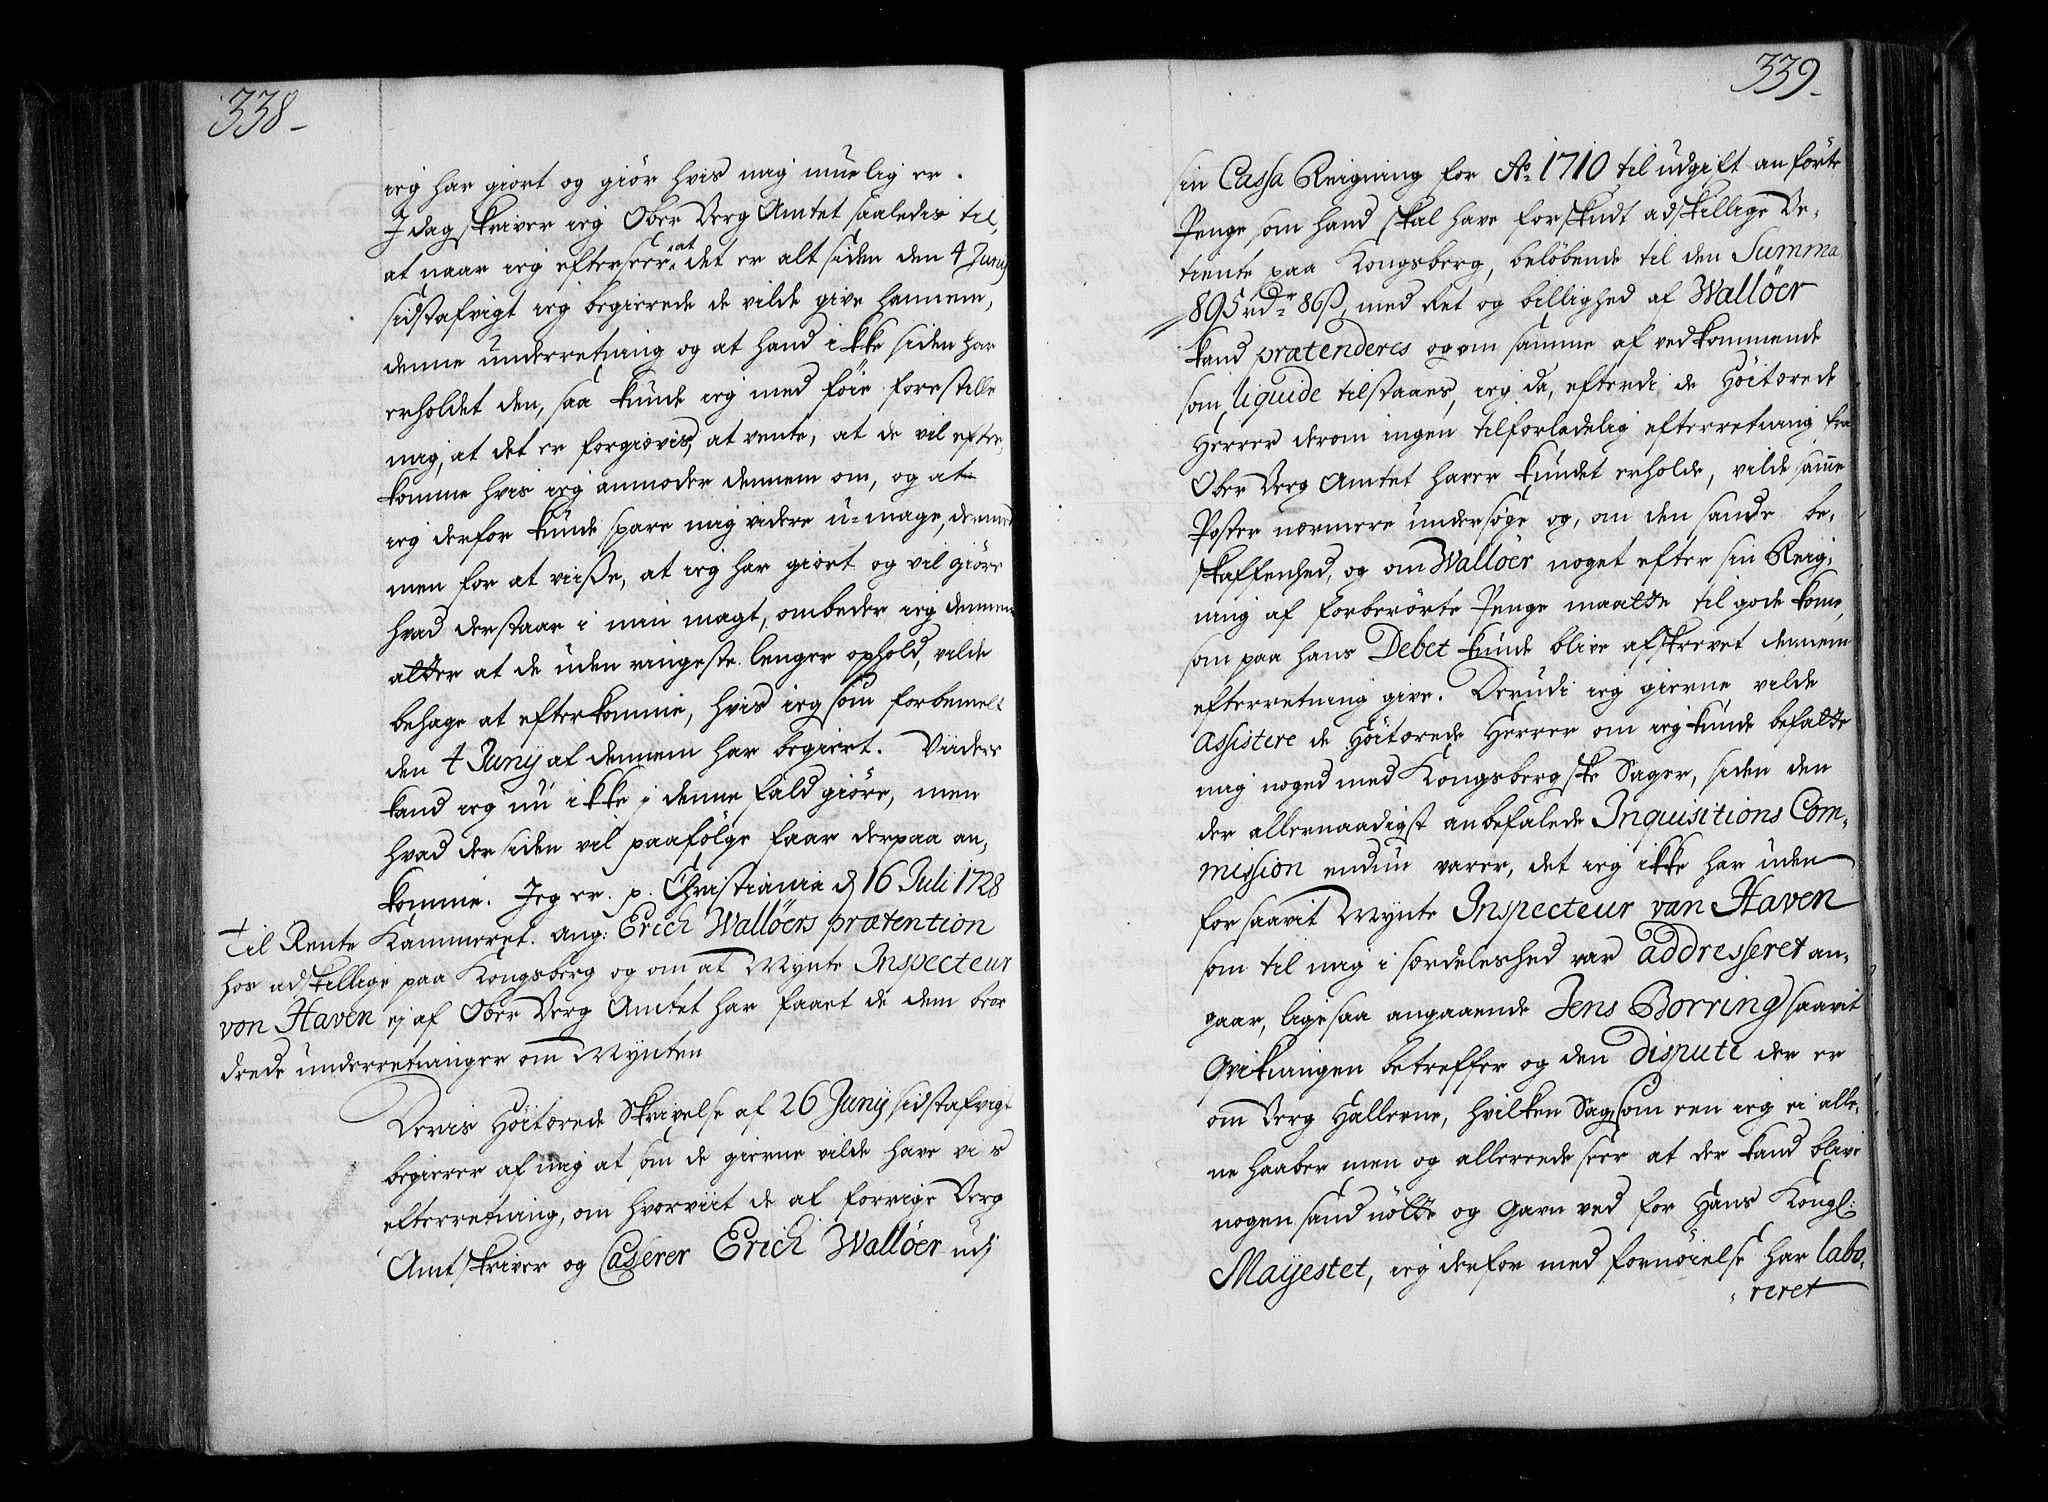 338
ieg har giort og giör hvis mig muelig er.
J dag skriver ieg Ober Berg Amtet saaledis til,
at naar ieg efterseer at det er alt siden den 4 Junij
sidstafvigt ieg begierede de vilde give hannem,
denne underretning og at hand ikke siden har
erholdet den, saa kunde ieg med föie forestille
mig, at det er forgiævis, at vente, at de vil efter,
komme hvis ieg anmoder dennem om, og at
ieg derfor kunde spare mig videre u-mage, dermed
men for at viiße, at ieg har giort og vil giöre
hvad der staar i min magt, ombeder ieg dennem
atter at de uden ringeste lenger ophold, vilde
behage at efterkomme, hvis ieg som forbemelt
den 4 Junij af dennem har begiert. Viidere
kand ieg nu ikke j denne fald giöre, men
hvad der siden vil paafölge faar derpaa an-
komme. Jeg er. p. Christiania d 16 Juli 1728
Til Rente Kammeret. ang: Erich Wallöers prætention
hos adskillige paa Kongsberg og om at Mynte Inspecteur
von Haven ej af Ober Berg Amtet har faaet de dem beor
drede underretninger om Mynten
Deris Höitærede Skrivelse af 26 Junij sidstafvigt
begierer af mig at som de gierne vilde have vis
efterretning, om hvorviit de af forrige Berg
Amtskriver og Casserer Erich Wallöer udj
339
sin Cassa Reigning for Ao 1710 til udgift anförte
Penge som hand skal have forskudt adskillige Be-
tiente paa Kongsberg, belöbende til den Summa
895 rdr 86 ß, med Ret og billighed af Wallöer
kand prætenderes og om samme af vedkommende
som liquide tilstaaes, ieg da, efterdi de Höitærede
Herrer derom ingen tilforladelig efterretning fra
Ober Berg Amtet haver kundet erholde, vilde samme
Poster nærmere undersöge og, om den sande be-
skaffenhed, og om Wallöer noget efter sin Reig-
ning af forberörte Penge maatte til gode komme,
som paa hans Debet kunde blive afskrevet dennem
efterretning give. Derudi ieg gierne vilde
assistere de Höitærede Herrer om ieg kunde befatte
mig noged med Kongsbergske Sager, siden den
der allernaadigst anbefalede Inquisitions Com-
mission endnu varer, det ieg ikke har uden
forsaavit Mynte Inspecteur van Haven
som til mig i særdeleshed var addresseret an-
gaar, lige saa angaaende Jens Borring saavit
Qvikningen betreffer og den dispute der er
om Berg Hallerne, hvilken Sag som een ieg ei alle-
ne haaber men og allereede seer at der kand blive
nogen sand nötte og Gavn ved for Hans Kongl:
Mayestet, ieg derfor med fornöielse har labo-
reret